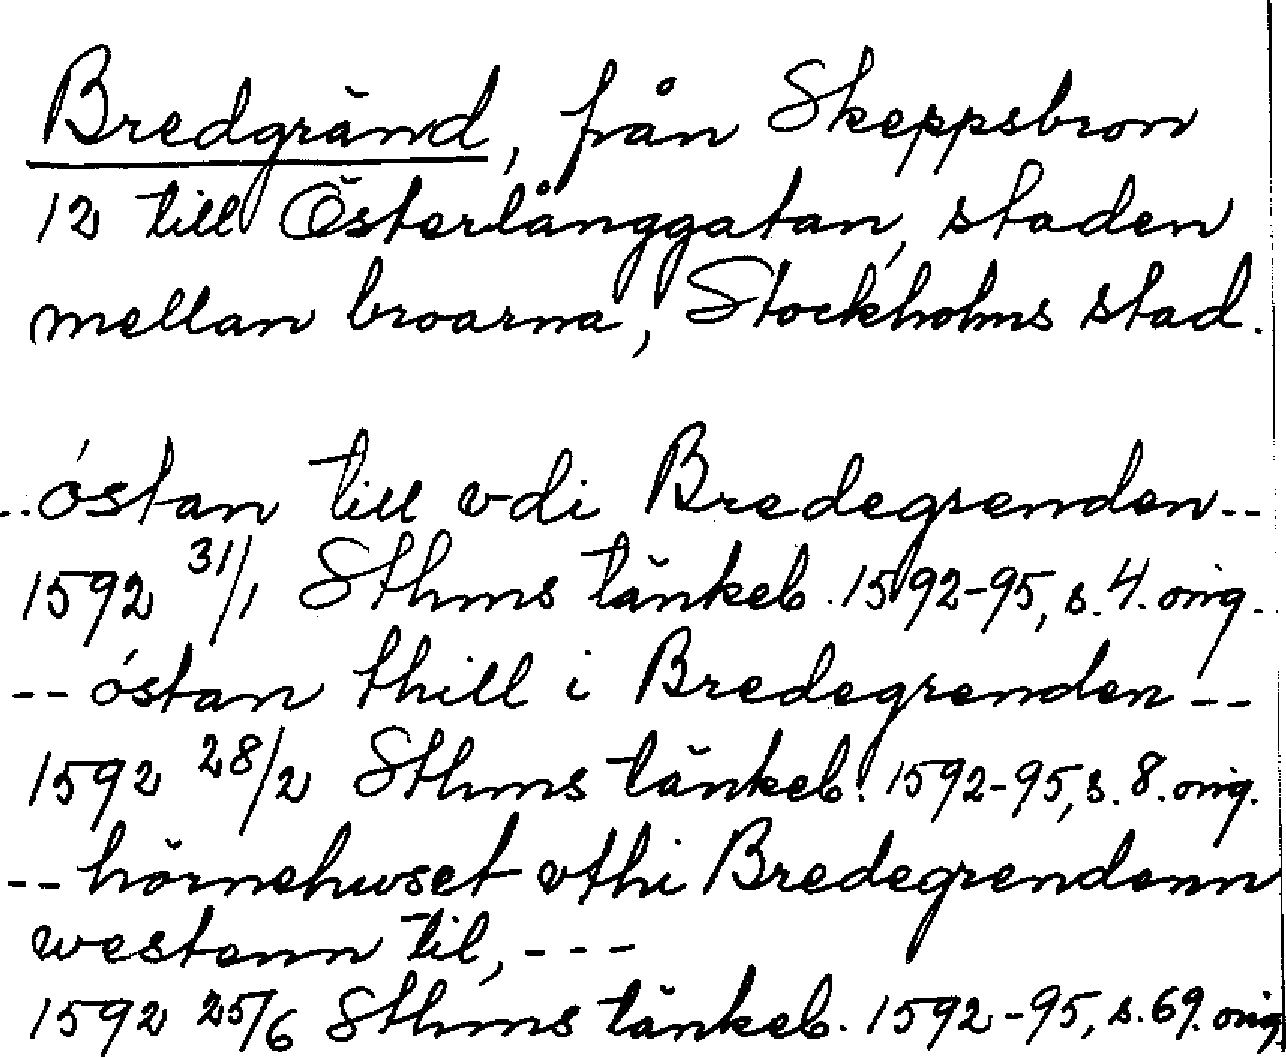 Bredgränd, från Skeppsbron
12 till Österlånggatan, staden
mellan broarna, Stockholms stad.
..óstan till vdi Bredegrenden--
1592 31/1 Sthms tänkeb. 1592-95, s. 4. orig.
--óstan thill i Bredegrenden--
1592 28/2 Sthms tänkeb. 1592-95, s. 8. orig.
--hörnehuset vthi Bredegrendenn
westenn til, ---
1592 25/6 Sthms tänkeb. 1592-95, s. 69. orig.